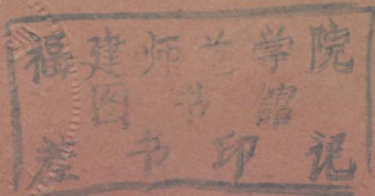 福建师范学院
图书馆
藏书印记